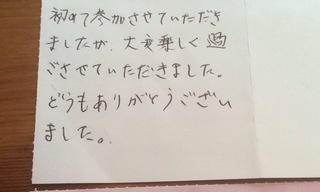 初めて参加させていただき
ましたが、大変楽しく過
ごさせていただきました。
どうもありがとうござい
ました。